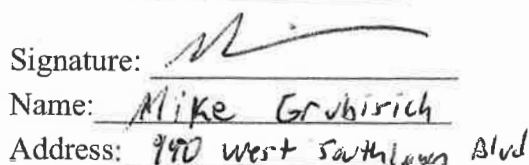 Signature:
Name: Mike Grubisich
Address: 990 West Southlawn Blvd